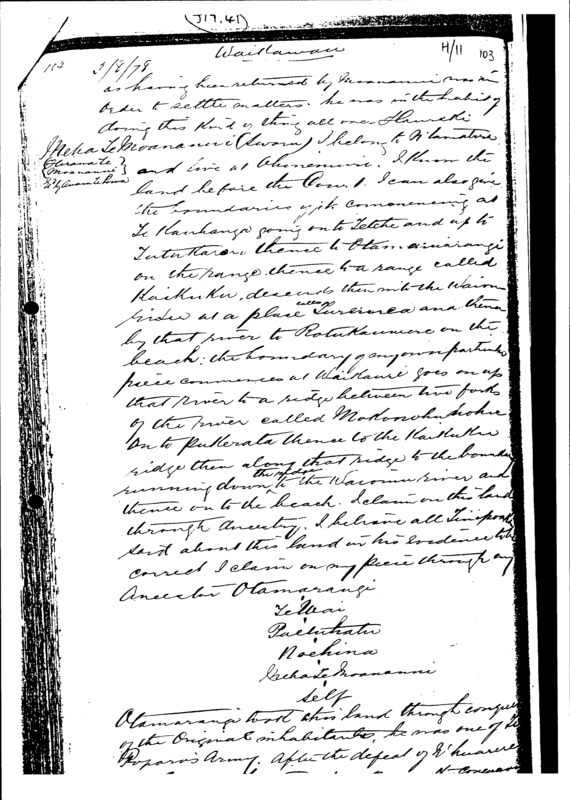 (J17.41)
Waikawau
H/11 103
103 3/8/78
as having been returned by Moananui was in
order to settle matters. he was in the habit of
doing this kind of thing all over Hauraki
Meha Te Moananui (Sworn) I belong to N'Tamatera
and live at Ohinemuri. I know the
land before the Court. I can also give
the boundaries of it commencing at
Te Kauhanga going on to Tetehe and up to
thence to Otamarangi
on the range thence to a range called
Kaikuku, descends then into the
river at a place called and thence
by that river to on the
beach: the boundary of my own particular
piece commences at goes on up
that river to a ridge between two forks
of the river called
on to Pukerata thence to the Kaikuku
ridge then along that ridge to the boundary
running down the ridge to the river and
thence on to the beach. I claim on this land
through Ancestry. I believe all
said about this land in his evidence to be
correct I claim on my piece through my
Ancestor Otamarangi
Te Wai
Nochina
Te Moananui
Self
Otamarangi took this land through conquest
of the Original inhabitants, he was one of Te
Army. After the defeat of